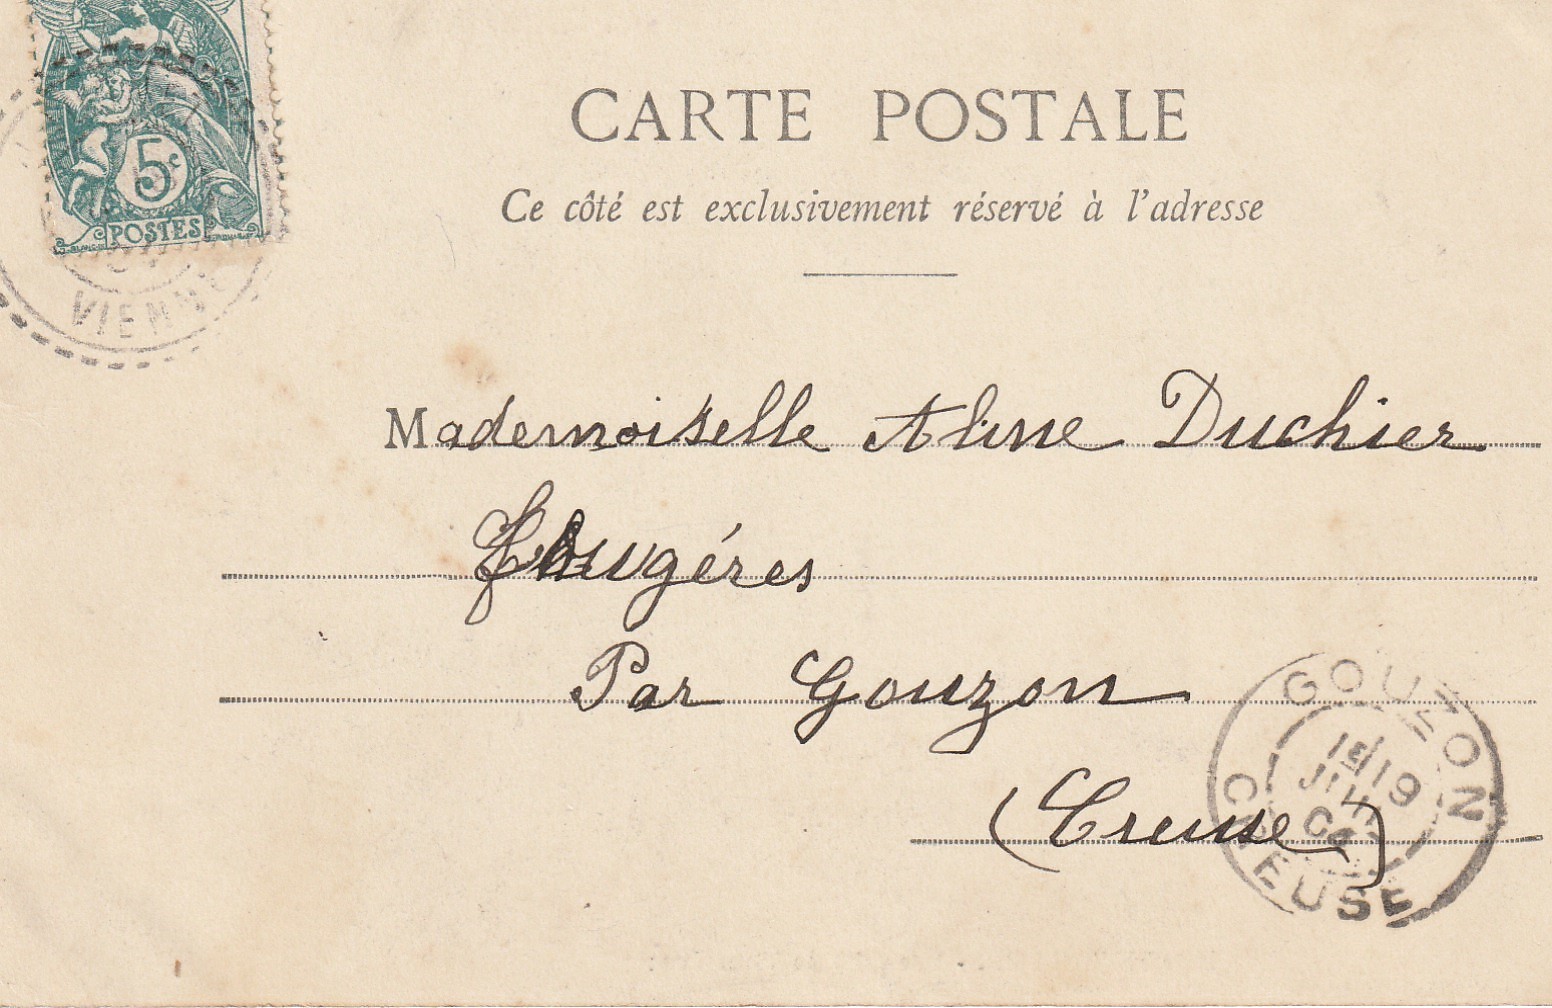 CARTE POSTALE
Ce côté est exclusivement réservé à l'adresse
5c
POSTES
VIENNE
Mademoiselle Aline Duchier
Fougéres
Par Gouzon
(Creuse)
GOUZON
19
04
CREUSE